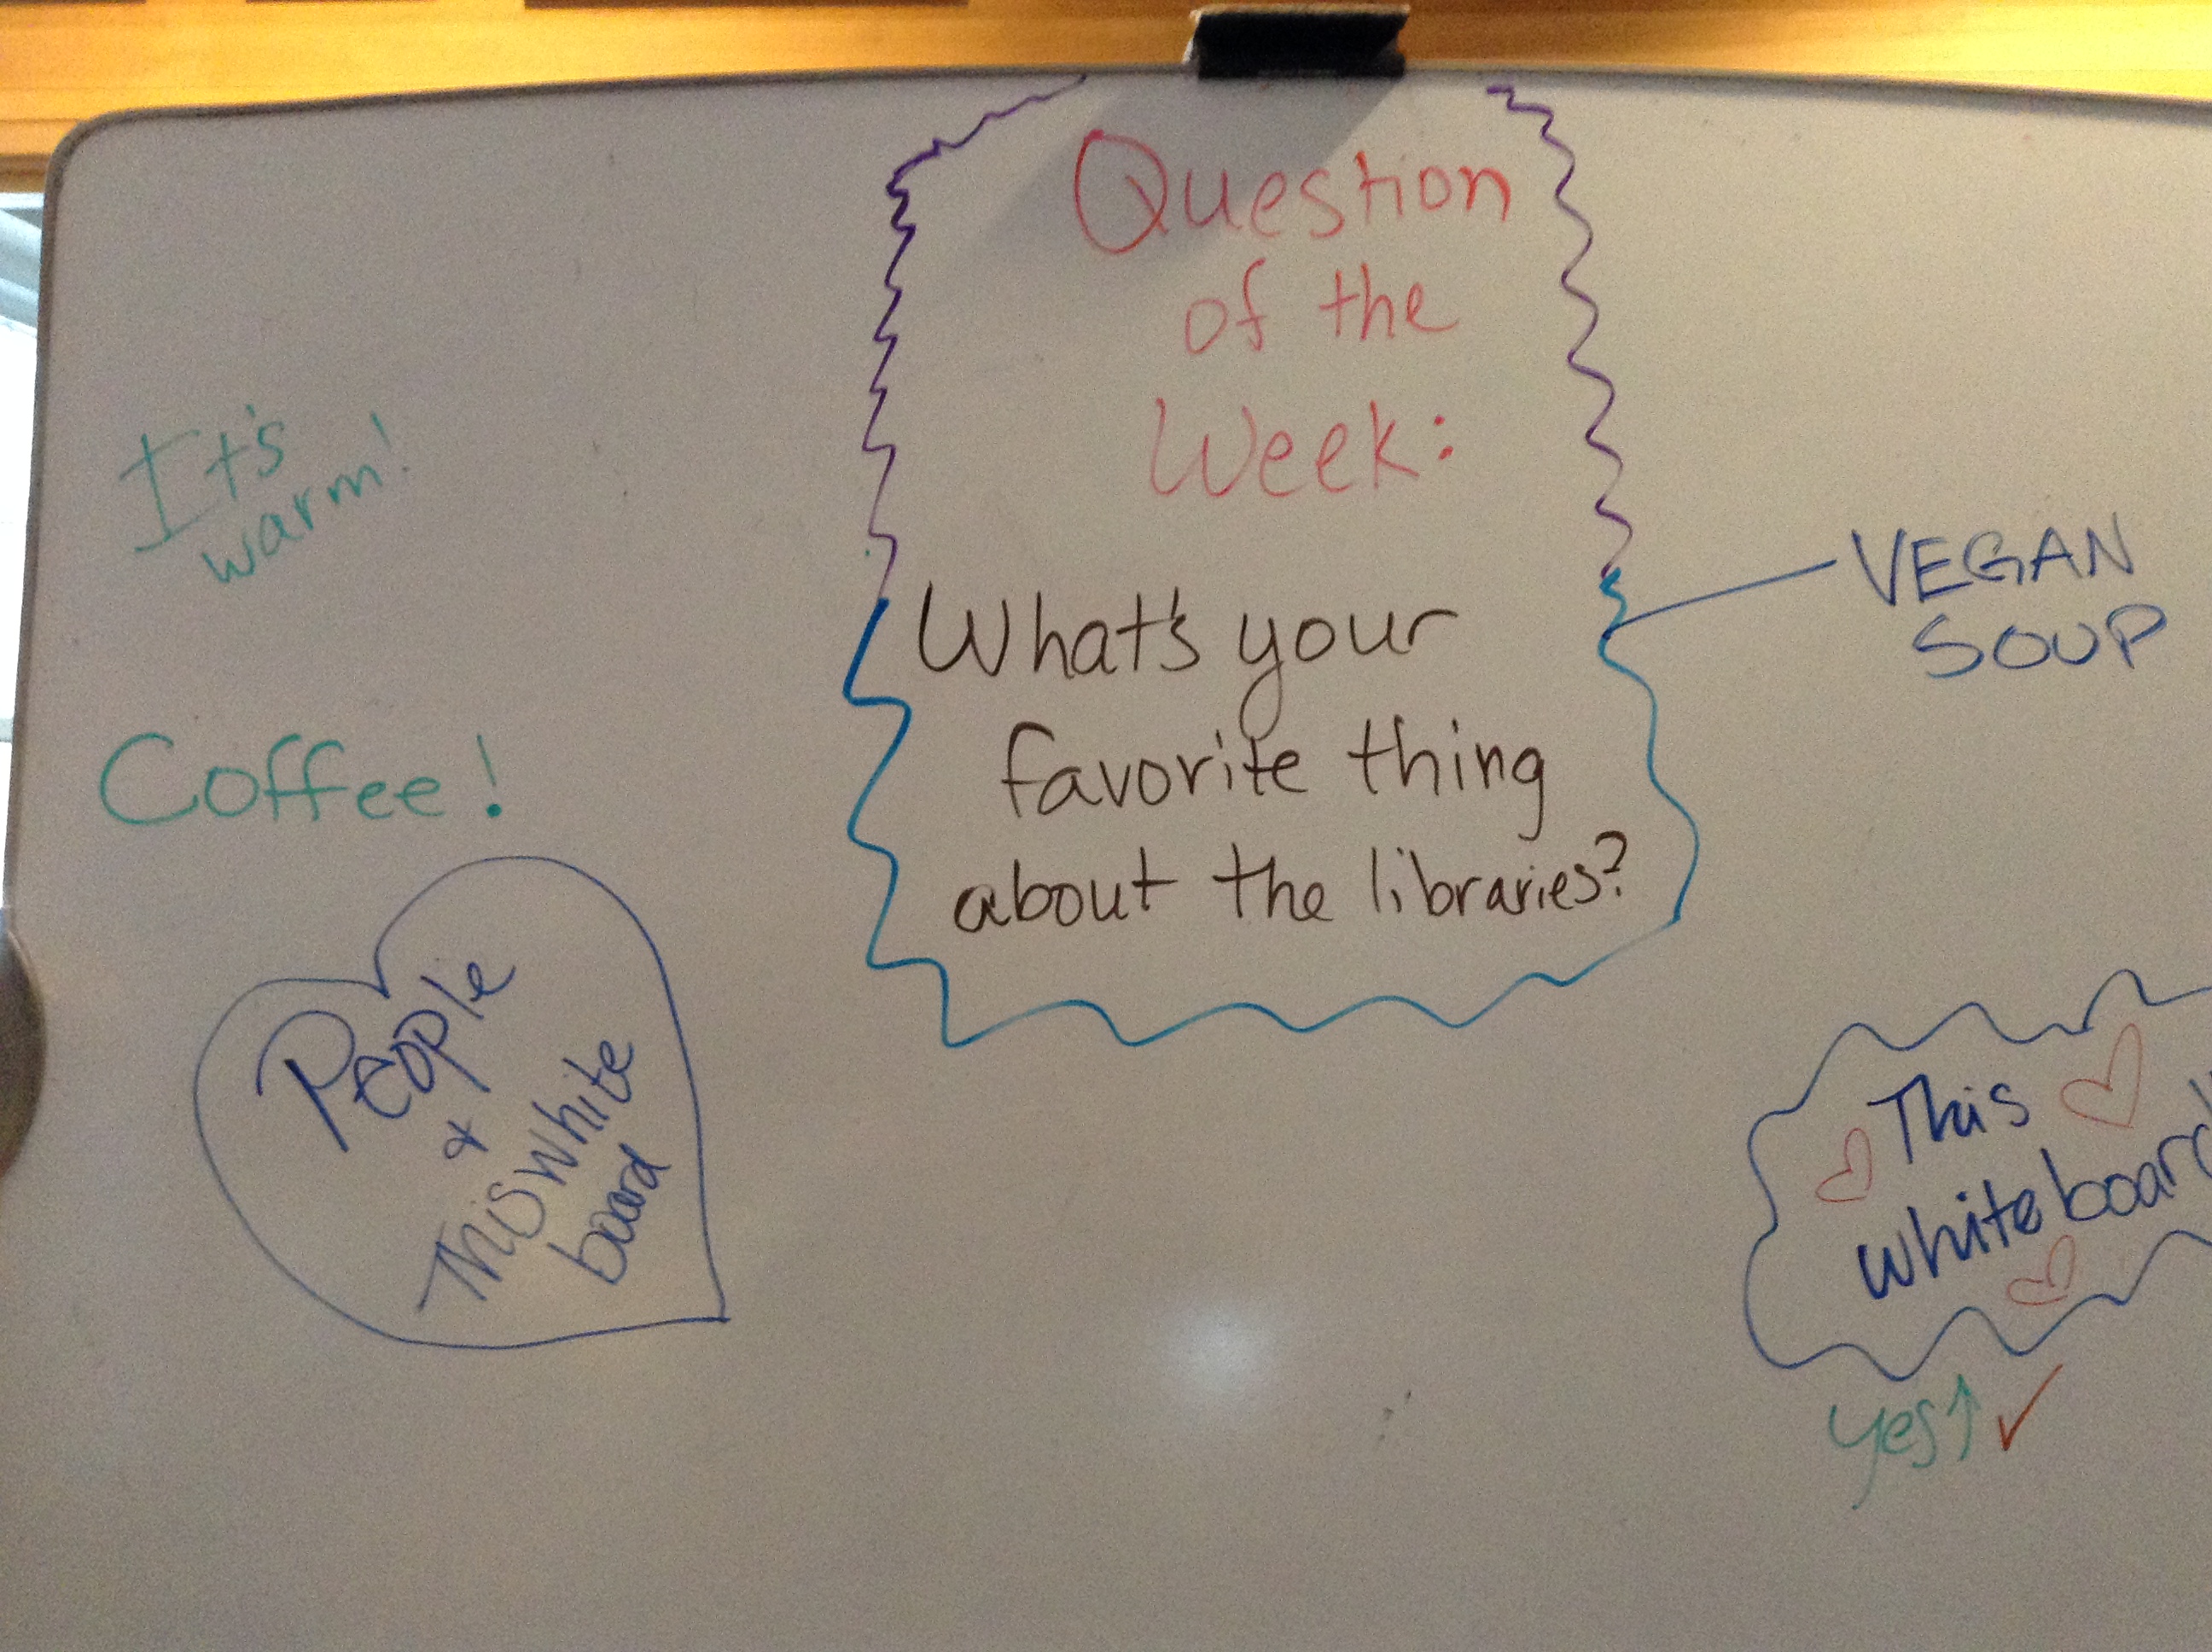 Question
of the
Week:
What's your
favorite thing
about the libraries?
It's
warm!
Coffee!
People
&
This white
board
VEGAN
SOUP
This
whiteboard
yes↑ ✓